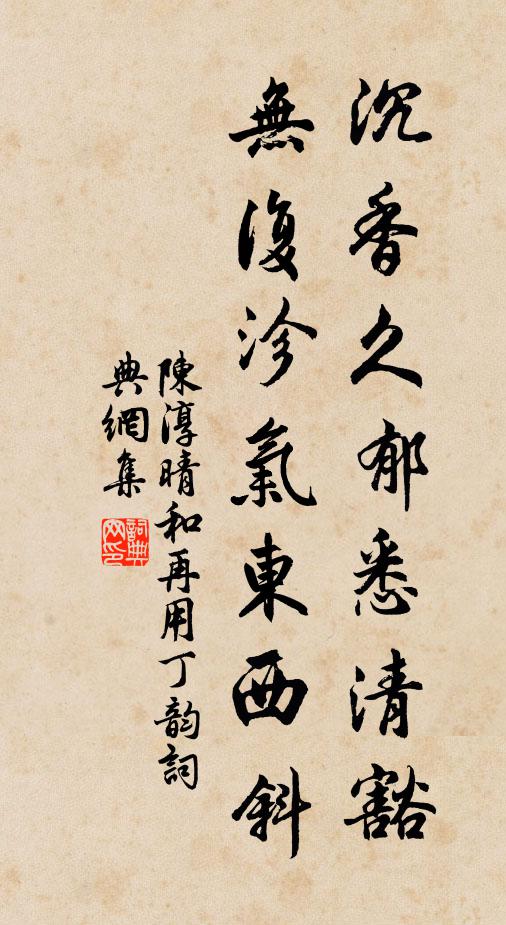 沉香久郁悉清豁
無復沴氣東西斜
陳淳晴和再用丁韵詞
典網集
詞典网印